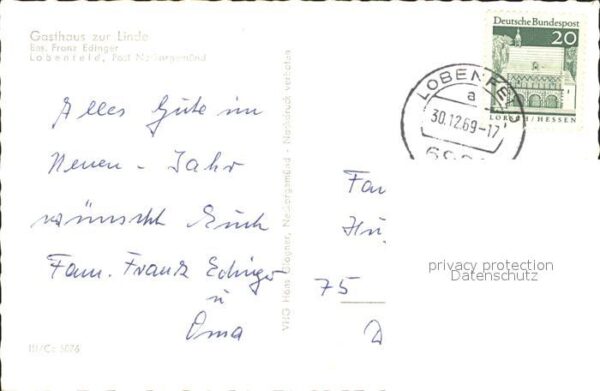 Gasthaus zur Linde
Bes. Franz Edinger
Lobenfeld, Post Neckargemünd
Alles Gute im
Neuen - Jahr
wünscht Euch
Fam. Franz Edinger
u
Oma
III/Ce 5076
VHG Hans Glogner, Neckargemünd - Nachdruck verboten
Deutsche Bundespost
20
LORSCH/HESSEN
LOBENFELD
a
30.12.69-17
Fam
75
privacy protection
Datenschutz